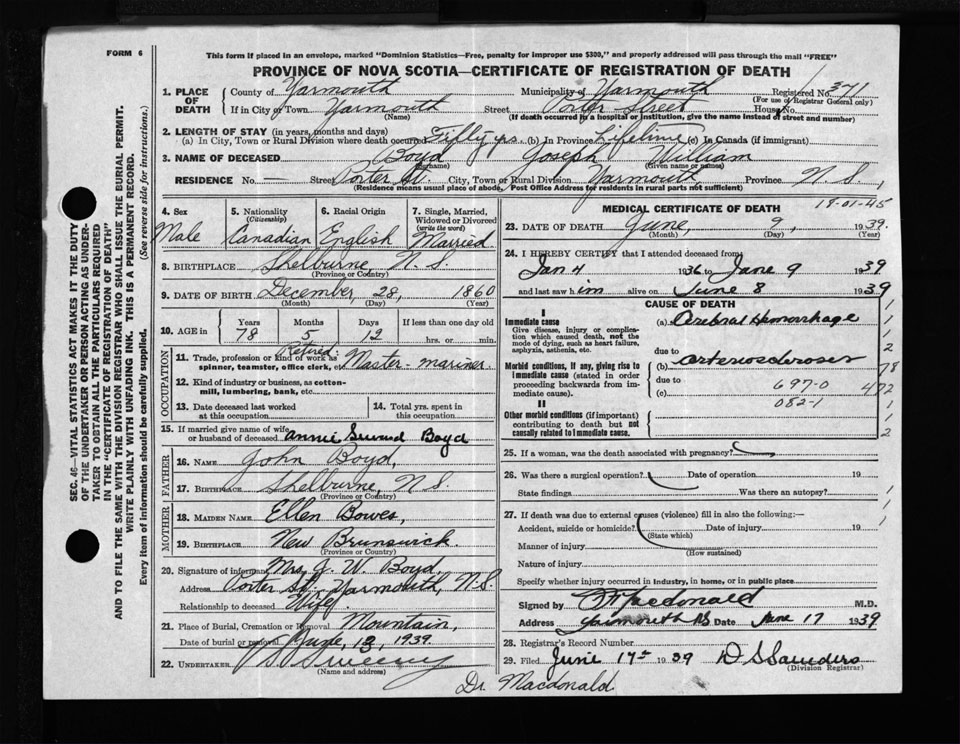 FORM 6
This form if placed in an envelope, marked "Dominion Statistics—Free, penalty for improper use $300," and properly addressed will pass through the mail "FREE"
PROVINCE OF NOVA SCOTIA—CERTIFICATE OF REGISTRATION OF DEATH
1. PLACE OF DEATH
County of Yarmouth Municipality of Yarmouth Registered No. 371
(For use of Registrar General only)
If in City or Town Yarmouth Street Porter Street House No.
(Name) (If death occurred in a hospital or institution, give the name instead of street and number)
2. LENGTH OF STAY (in years, months and days)
(a) In City, Town or Rural Division where death occurred Fifty yrs. (b) In Province Lifetime (c) In Canada (if immigrant)
3. NAME OF DECEASED Boyd Joseph William
(Given name or names)
RESIDENCE No. Street Porter St. City, Town or Rural Division Yarmouth Province N.S.,
(Residence means usual place of abode. Post Office Address for residents in rural parts not sufficient)
SEC. 46—VITAL STATISTICS ACT MAKES IT THE DUTY
OF THE UNDERTAKER OR PERSON ACTING AS UNDER-
TAKER TO OBTAIN ALL THE PARTICULARS REQUIRED
IN THE "CERTIFICATE OF REGISTRATION OF DEATH"
AND TO FILE THE SAME WITH THE DIVISION REGISTRAR WHO SHALL ISSUE THE BURIAL PERMIT.
WRITE PLAINLY WITH UNFADING INK. THIS IS A PERMANENT RECORD.
Every item of information should be carefully supplied. (See reverse side for instructions.)
4. Sex
Male
5. Nationality
(Citizenship)
Canadian
6. Racial Origin
English
7. Single, Married, Widowed or Divorced
(write the word)
Married.
8. BIRTHPLACE Shelburne N.S.
(Province or Country)
9. DATE OF BIRTH December, 28, 1860
(Month) (Day) (Year)
10. AGE in
Years Months Days If less than one day
78 5 12 hrs. or min.
OCCUPATION
11. Trade, profession or kind of work as Retired. Master-mariner.
spinner, teamster, office clerk, etc.
12. Kind of industry or business, as cotton-
mill, lumbering, bank, etc.
13. Date deceased last worked
at this occupation
14. Total yrs. spent in
this occupation
15. If married give name of wife
or husband of deceased Annie Boyd
FATHER
16. NAME John Boyd,
17. BIRTHPLACE Shelburne, N.S.
(Province or Country)
MOTHER
18. MAIDEN NAME Ellen Bowes,
19. BIRTHPLACE New Brunswick.
(Province or Country)
20. Signature of informant Mrs J. W. Boyd,
Address Porter St. Yarmouth, N.S.
Relationship to deceased Wife.
21. Place of Burial, Cremation or Removal Mountain,
Date of burial or removal June, 13, 1939.
22. UNDERTAKER
(Name and address)
18-01-45
MEDICAL CERTIFICATE OF DEATH
23. DATE OF DEATH June, 9, 1939.
(Month) (Day) (Year)
24. I HEREBY CERTIFY that I attended deceased from
Jan 4 1936 to June 9 1939
and last saw him alive on June 8 1939
CAUSE OF DEATH
I
Immediate cause
Give disease, injury or complica-
tion which caused death, not the
mode of dying, such as heart failure,
asphyxia, asthenia, etc.
(a) Cerebral Hemorrhage
due to
Morbid conditions, if any, giving rise to
immediate cause (stated in order
proceeding backwards from im-
mediate cause).
(b) arteriosclerosis
due to
(c)
697-0
082-1
II
Other morbid conditions (if important)
contributing to death but not
causally related to immediate cause.
1
1
2
78
472
1
1
2
25. If a woman, was the death associated with pregnancy?
26. Was there a surgical operation? Date of operation 19
State findings Was there an autopsy?
27. If death was due to external causes (violence) fill in also the following:—
Accident, suicide or homicide? Date of injury 19
(State which)
Manner of injury
(How sustained)
Nature of injury
Specify whether injury occurred in industry, in home, or in public place
Signed by Macdonald M.D.
Address Yarmouth NS Date June 17 1939
28. Registrar's Record Number
29. Filed June 17th 1939 D S Saunders
(Division Registrar)
Dr. Macdonald